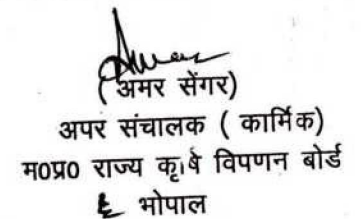 (अमर सेंगर)
अपर संचालक ( कार्मिक)
म०प्र० राज्य कृषि विपणन बोर्ड
भोपाल